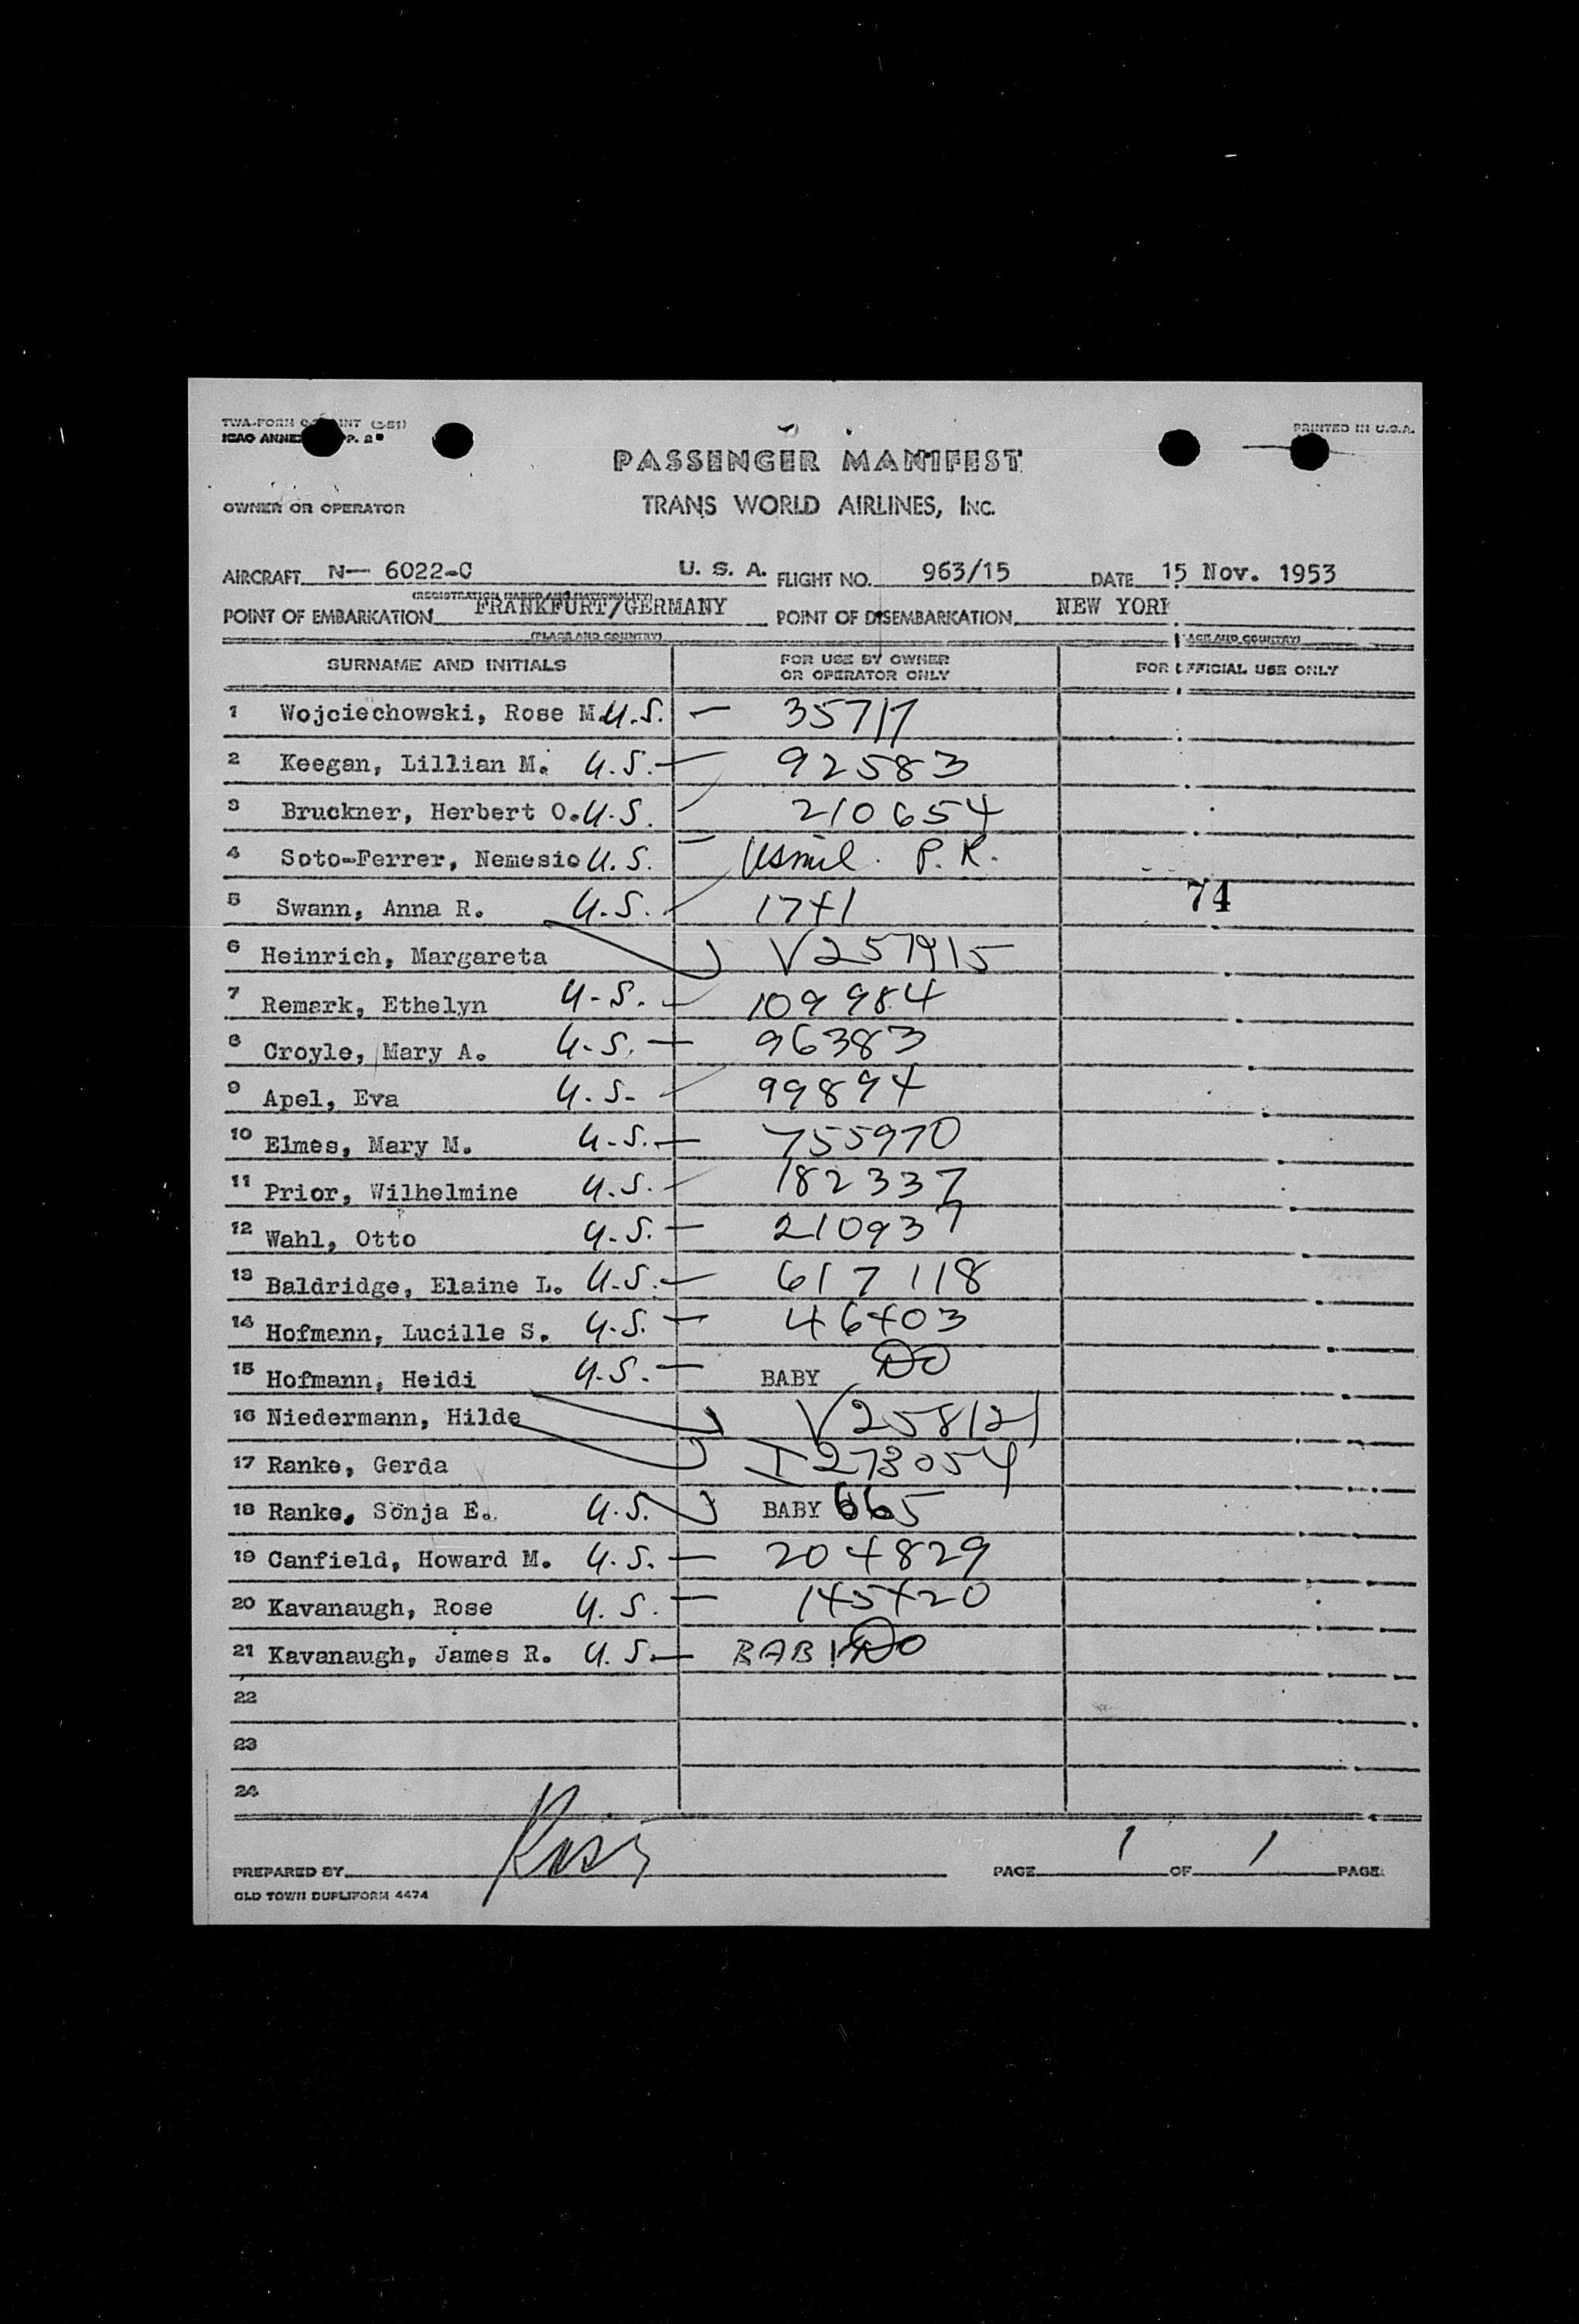 TWA-FORM INT (3-51)
ICAO ANNEX P. 2
PRINTED IN U.S.A.
PASSENGER MANIFEST
OWNER OR OPERATOR TRANS WORLD AIRLINES, INC.
AIRCRAFT N— 6022-C U. S. A. FLIGHT NO. 963/15 DATE 15 Nov. 1953
(REGISTRATION MARKS AND NATIONALITY)
POINT OF EMBARKATION FRANKFURT/GERMANY POINT OF DISEMBARKATION NEW YORK
(PLACE AND COUNTRY) (PLACE AND COUNTRY)
SURNAME AND INITIALS FOR USE BY OWNER OR OPERATOR ONLY FOR OFFICIAL USE ONLY
1 Wojciechowski, Rose M. U.S. — 35717
2 Keegan, Lillian M. U.S. — 92583
3 Bruckner, Herbert O. U.S. 210654
4 Soto-Ferrer, Nemesio U.S. — Usmil. P.R.
5 Swann, Anna R. U.S. 1741 74
6 Heinrich, Margareta V257915
7 Remark, Ethelyn U.S. 109984
8 Croyle, Mary A. U.S. — 96383
9 Apel, Eva U.S. 99894
10 Elmes, Mary M. U.S. — 755970
11 Prior, Wilhelmine U.S. 182337
12 Wahl, Otto U.S. — 210937
13 Baldridge, Elaine L. U.S. — 617118
14 Hofmann, Lucille S. U.S. — 46403
15 Hofmann, Heidi U.S. — BABY DO
16 Niedermann, Hilde V258121
17 Ranke, Gerda I273054
18 Ranke, Sonja E. U.S. BABY 665
19 Canfield, Howard M. U.S. — 204829
20 Kavanaugh, Rose U.S. — 145420
21 Kavanaugh, James R. U.S. — BABY DO
22
23
24
PREPARED BY PAGE 1 OF 1 PAGE
OLD TOWN DUPLIFORM 4474